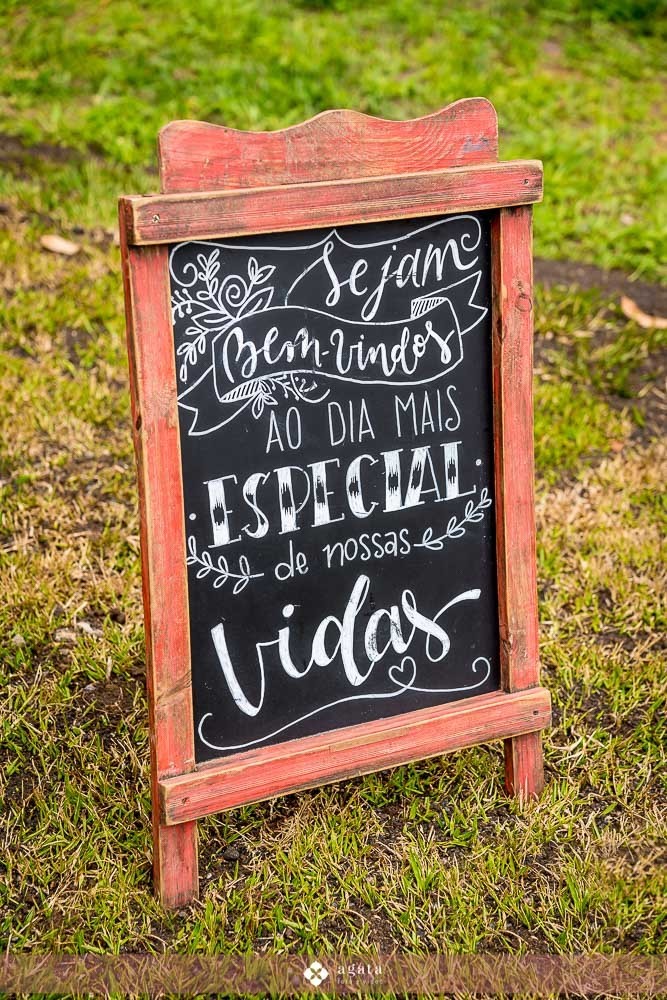 Sejam
Bem-Vindos
AO DIA MAIS
ESPECIAL
de nossas
Vidas
agata
foto e vídeo